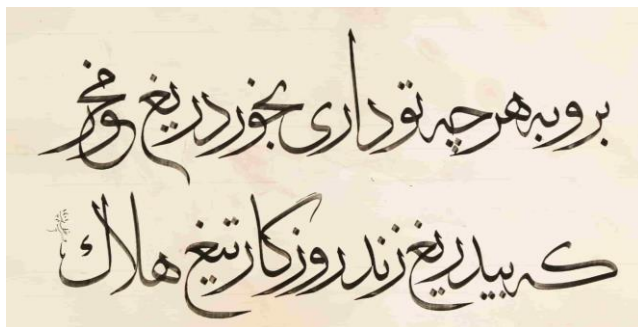 برو به هر چه تو داری بخور دریغ مخور
که بیدریغ زند روزگار تیغ هلاک